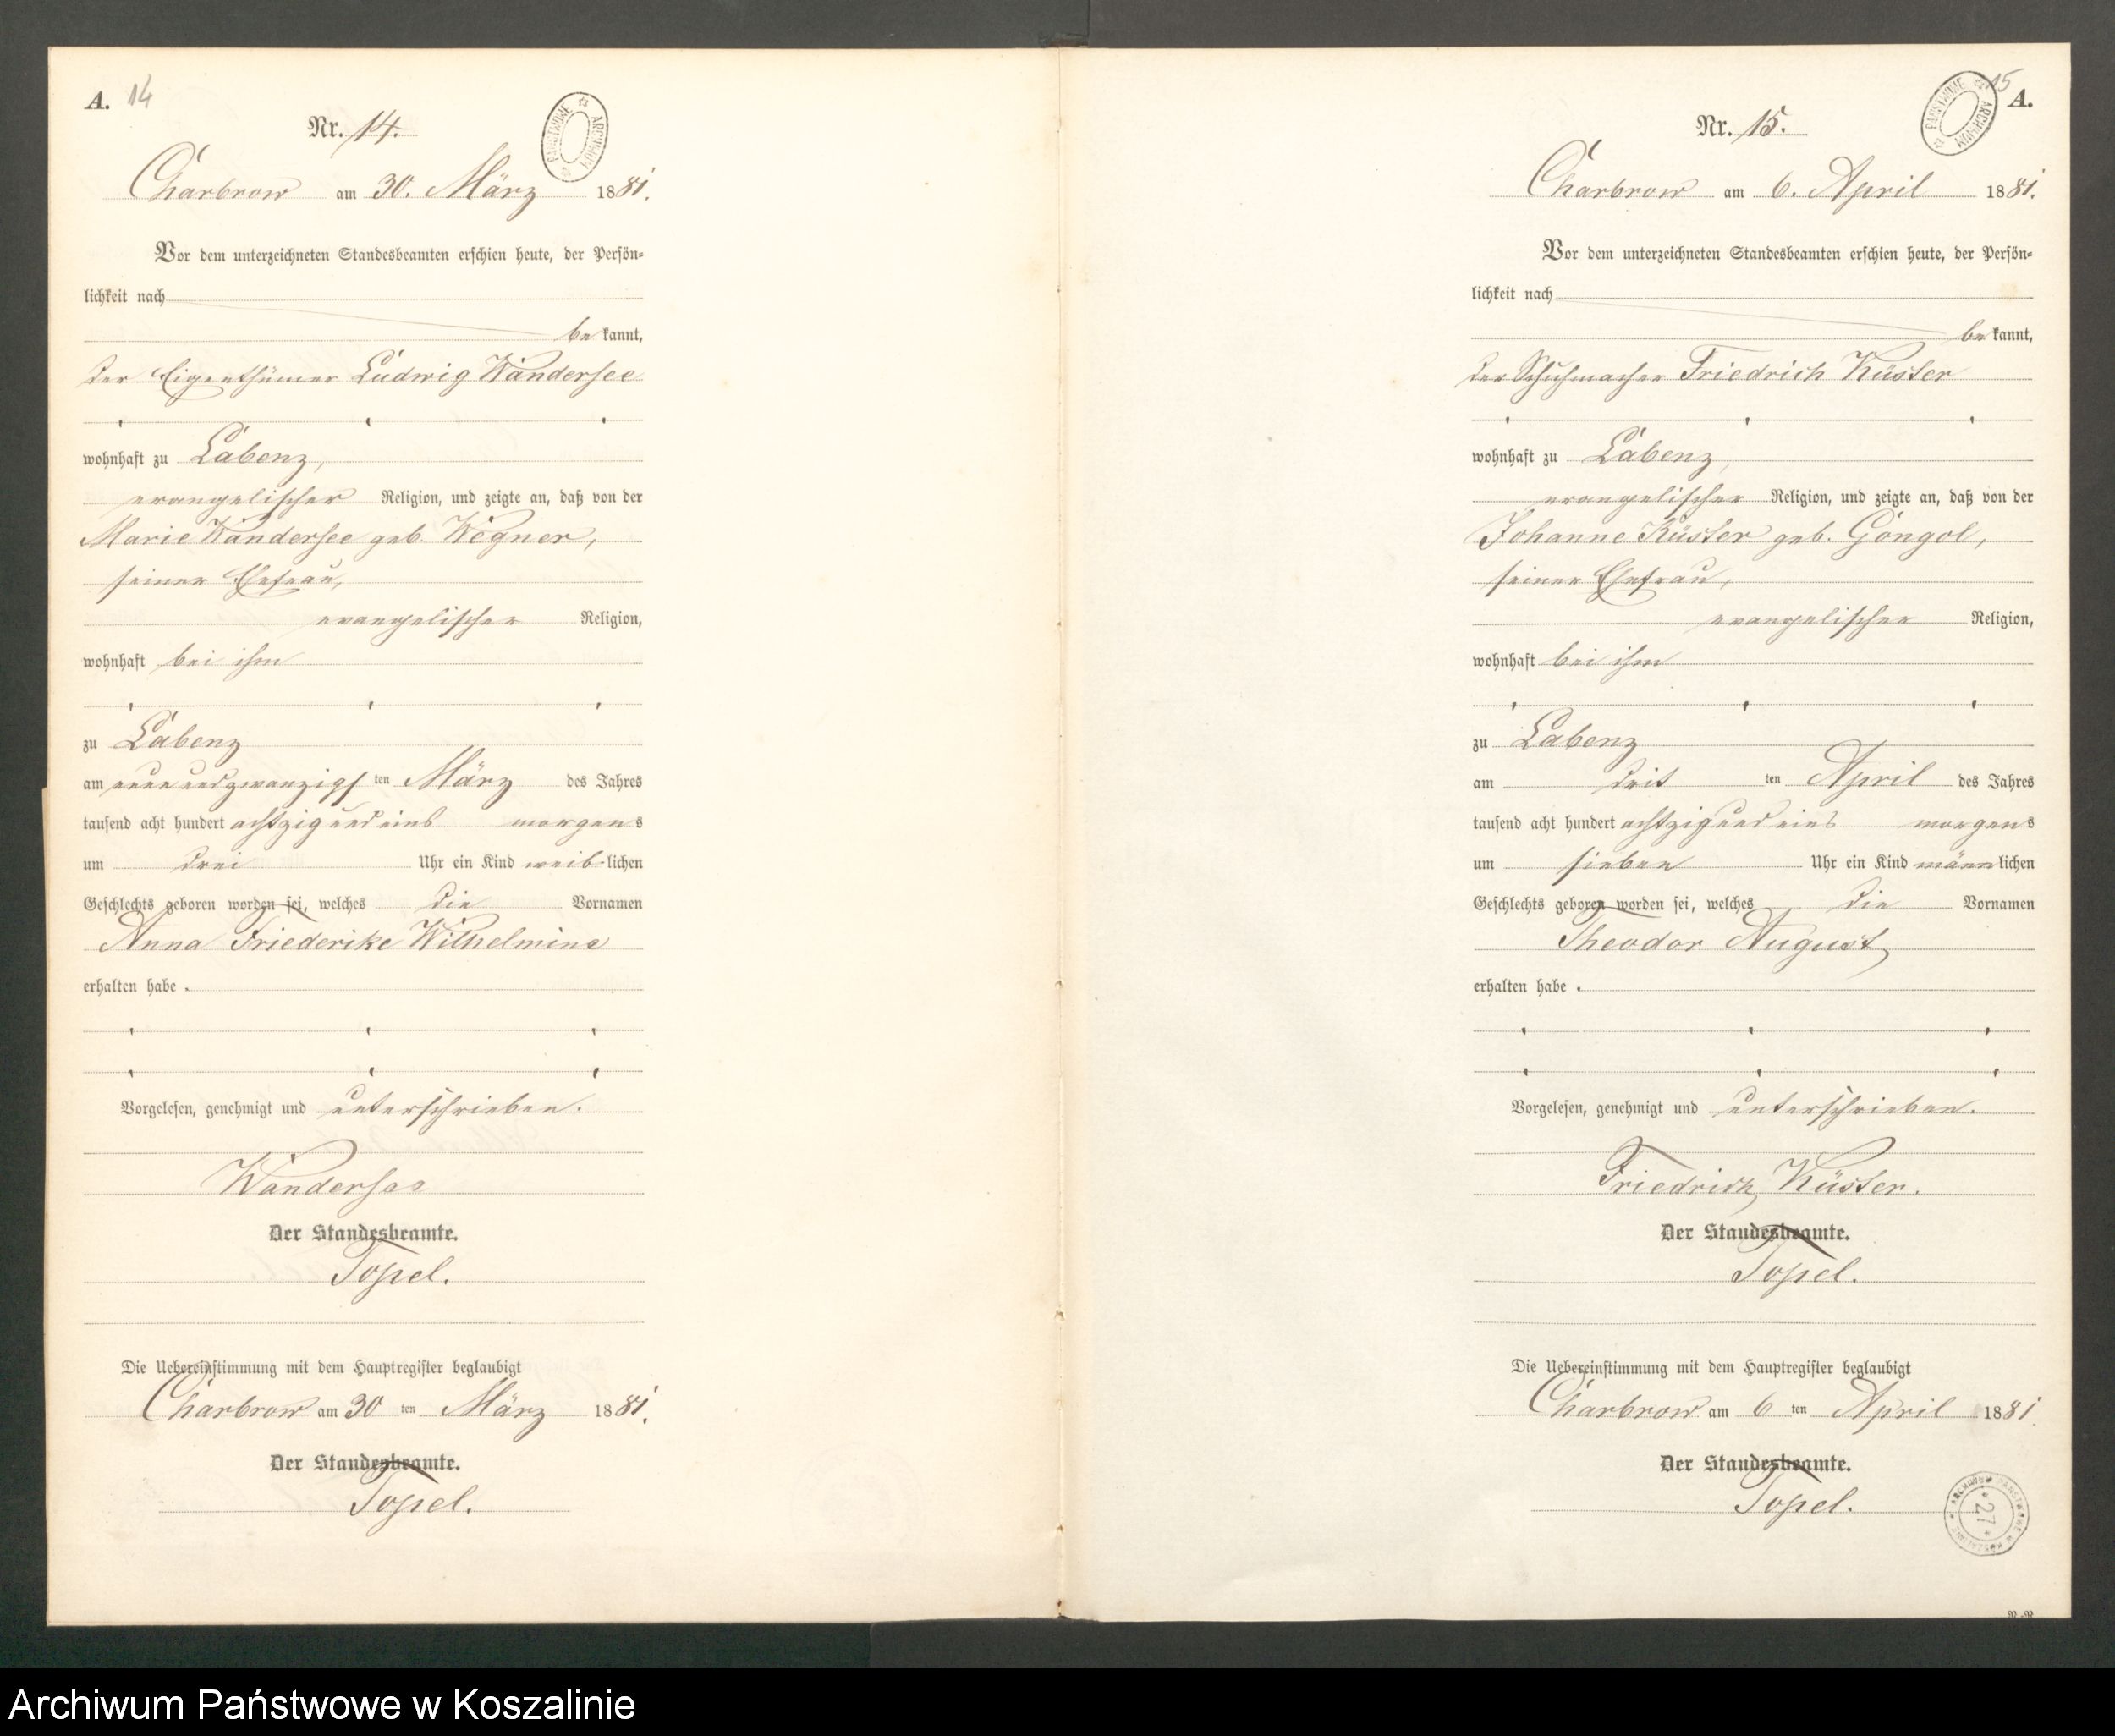 A. 14
Nr. 14.
Charbrow am 30. März 1881.
Vor dem unterzeichneten Standesbeamten erschien heute, der Persön-
lichkeit nach
bekannt,
der Eigenthümer Ludwig Wandersee
wohnhaft zu Labenz,
evangelischer Religion, und zeigte an, daß von der
Marie Wandersee geb. Wegner,
seiner Ehefrau,
evangelischer Religion,
wohnhaft bei ihm
zu Labenz
am neunundzwanzigsten März des Jahres
tausend acht hundert achtzig und eins morgens
um drei Uhr ein Kind weiblichen
Geschlechts geboren worden sei, welches die Vornamen
Anna Friederike Wilhelmine
erhalten habe.
Vorgelesen, genehmigt und unterschrieben.
Wandersee
Der Standesbeamte.
Topel.
Die Uebereinstimmung mit dem Hauptregister beglaubigt
Charbrow am 30 ten März 1881.
Der Standesbeamte.
Topel.
PAŃSTWOWE ARCHIWUM
15
A.
Nr. 15.
PAŃSTWOWE ARCHIWUM
Charbrow am 6. April 1881.
Vor dem unterzeichneten Standesbeamten erschien heute, der Persön-
lichkeit nach
bekannt,
der Schuhmacher Friedrich Küster
wohnhaft zu Labenz,
evangelischer Religion, und zeigte an, daß von der
Johanne Küster geb. Gongol,
seiner Ehefrau,
evangelischer Religion,
wohnhaft bei ihm
zu Labenz
am dritten April des Jahres
tausend acht hundert achtzig und eins morgens
um sieben Uhr ein Kind männlichen
Geschlechts geboren worden sei, welches die Vornamen
Theodor August
erhalten habe.
Vorgelesen, genehmigt und unterschrieben.
Friedrich Küster.
Der Standesbeamte.
Topel.
Die Uebereinstimmung mit dem Hauptregister beglaubigt
Charbrow am 6 ten April 1881.
Der Standesbeamte.
Topel.
ARCHIWUM PAŃSTWOWE W KOSZALINIE
27
Archiwum Państwowe w Koszalinie